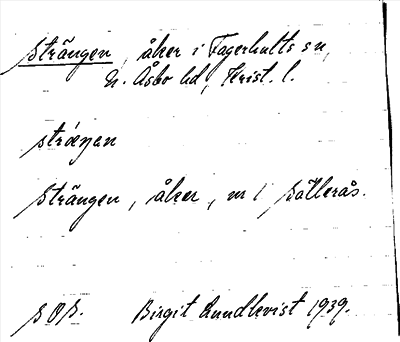 Strängen, åker i Fagerhults sn,
N. Åsbo hd, Krist. l.
stráŋan
Strängen, åker, nr 1 Sållerås.
S O S. Birgit Lundkvist 1939.